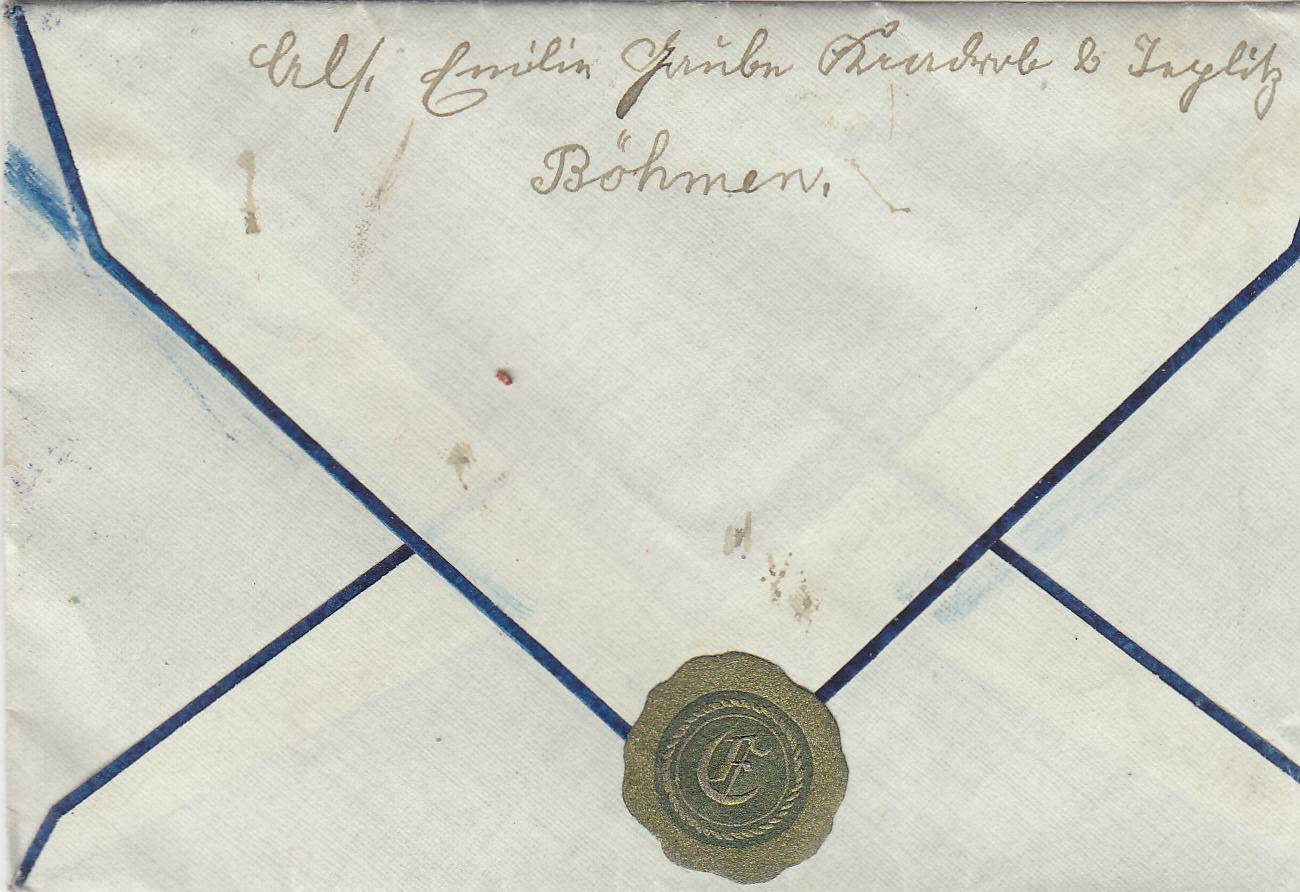 Abs. Emilie Gaube Kradrob b Teplitz
Böhmen.
E